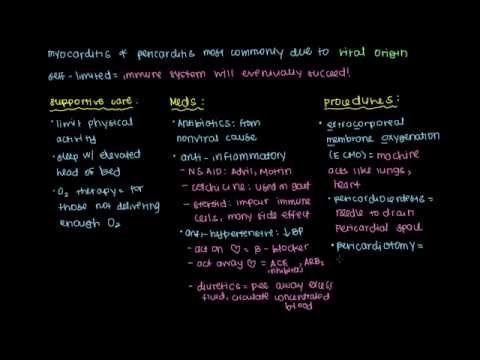 myocarditis & pericarditis most commonly due to viral origin
self-limited = immune system will eventually succeed!
supportive care:
• limit physical
activity
• sleep w/ elevated
head of bed
• O2 therapy = for
those not delivering
enough O2
Meds:
• Antibiotics: from
nonviral cause
• anti-inflammatory
- NSAID: Advil, Motrin
- colchicine: used in gout
- steroid: impair immune
cells, many side effect
• anti-hypertensive: ↓BP
- act on ♡ = B-blocker
- act away ♡ = ACE inhibitors, ARBs
- diuretics = pee away excess
fluid, circulate concentrated
blood
procedures:
• extracorporeal
membrane oxygenation
(ECMO) = machine
acts like lungs,
heart
• pericardiocentesis =
needle to drain
pericardial space
• pericardiotomy =